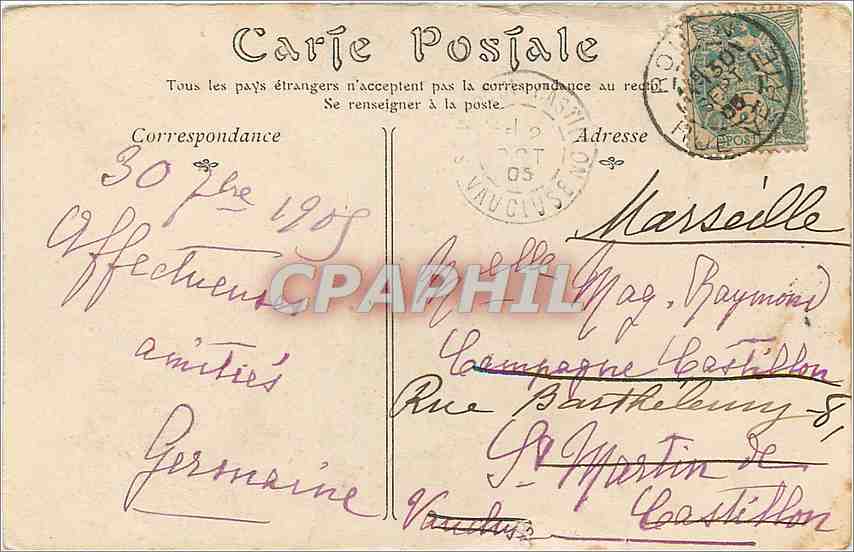 Carte Postale
Tous les pays étrangers n'acceptent pas la correspondance au recto.
Se renseigner à la poste.
Correspondance
Adresse
30 7bre 1905
Affectueuses
amitiés
Germaine
CPAPHIL
Marseille
Melle Mag. Raymond
Campagne Castillon
Rue Barthélemy 8,
St Martin de
Castillon
Vaucluse
2
OCT
05
VAUCLUSE
30
SEPT
05
POSTES